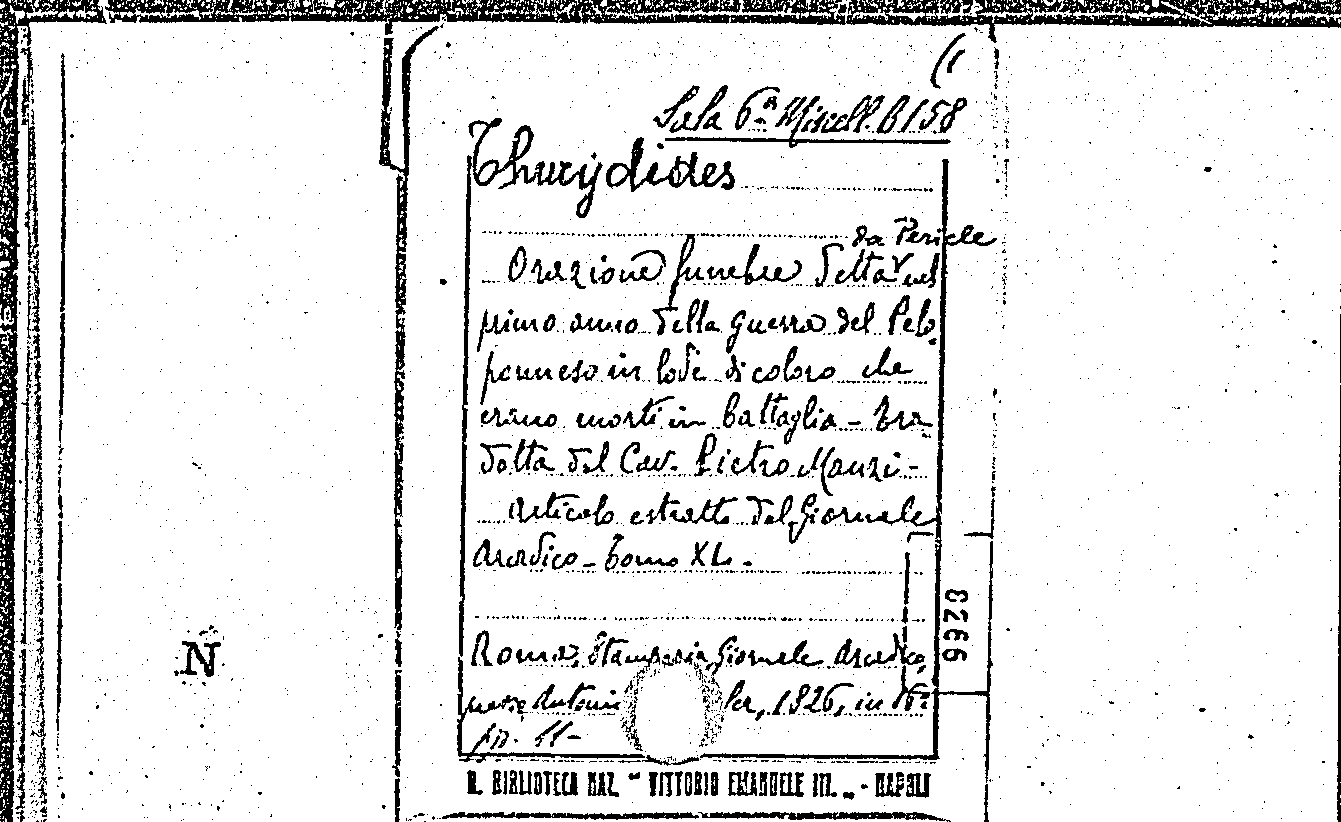 (1
Sala 6ª Miscell. B158
Thucydides
da Pericle
Orazione funebre detta nel
primo anno della guerra del Pelo-
ponneso in lode di coloro che
erano morti in battaglia - Tra-
dotta dal Cav. Pietro Manzi -
Articolo estratto dal Giornale
Arcadico - Tomo XL.
Roma, Stamperia Giornale Arcadico,
presso Antonio 1826, in
pp. 11 -
R. BIBLIOTECA NAZ. " VITTORIO EMANUELE III. „ - NAPOLI
8266
N